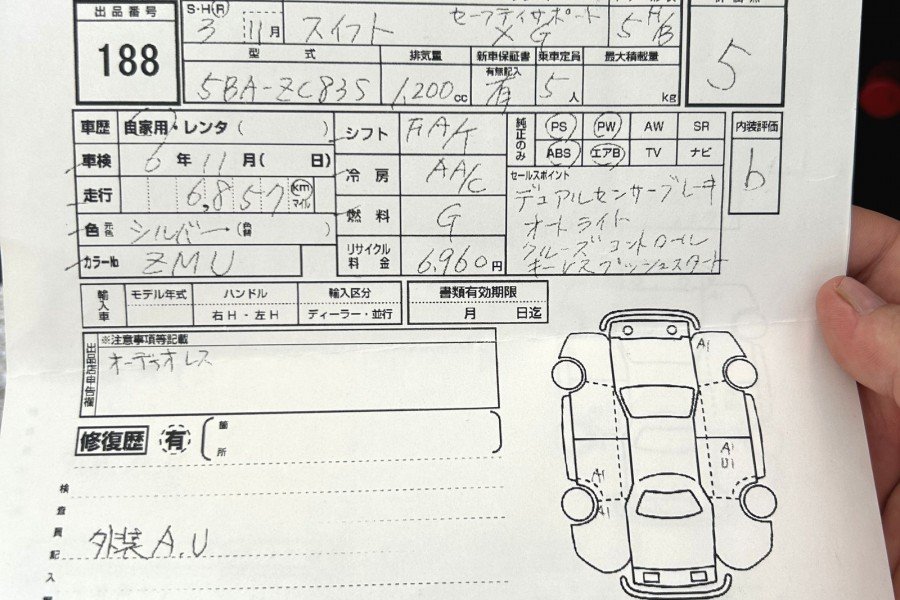 出品番号
188
S・H・R
3 11月
スイフト
セーフティサポート
XG
5 H/B
5
型式
5BA-ZC83S
排気量
1,200cc
新車保証書
有無記入
有
乗車定員
5人
最大積載量
kg
車歴 自家用・レンタ( )
車検 6年11月( 日)
走行 6,857 km マイル
色 元色 シルバー (色替 )
カラーNo ZMU
シフト FIA/T
冷房 AA/C
燃料 G
リサイクル料金 6,960円
純正のみ
PS PW AW SR
ABS エアB TV ナビ
内装評価
b
セールスポイント
デュアルセンサーブレーキ
オートライト
クルーズコントロール
キーレスプッシュスタート
輸入車
モデル年式
ハンドル
右H・左H
輸入区分
ディーラー・並行
書類有効期限
月 日迄
出品店申告欄
※注意事項等記載
オーディオレス
修復歴 有
箇所
検査員記入
外装 A.U
A1
A1
U1
A1
A1